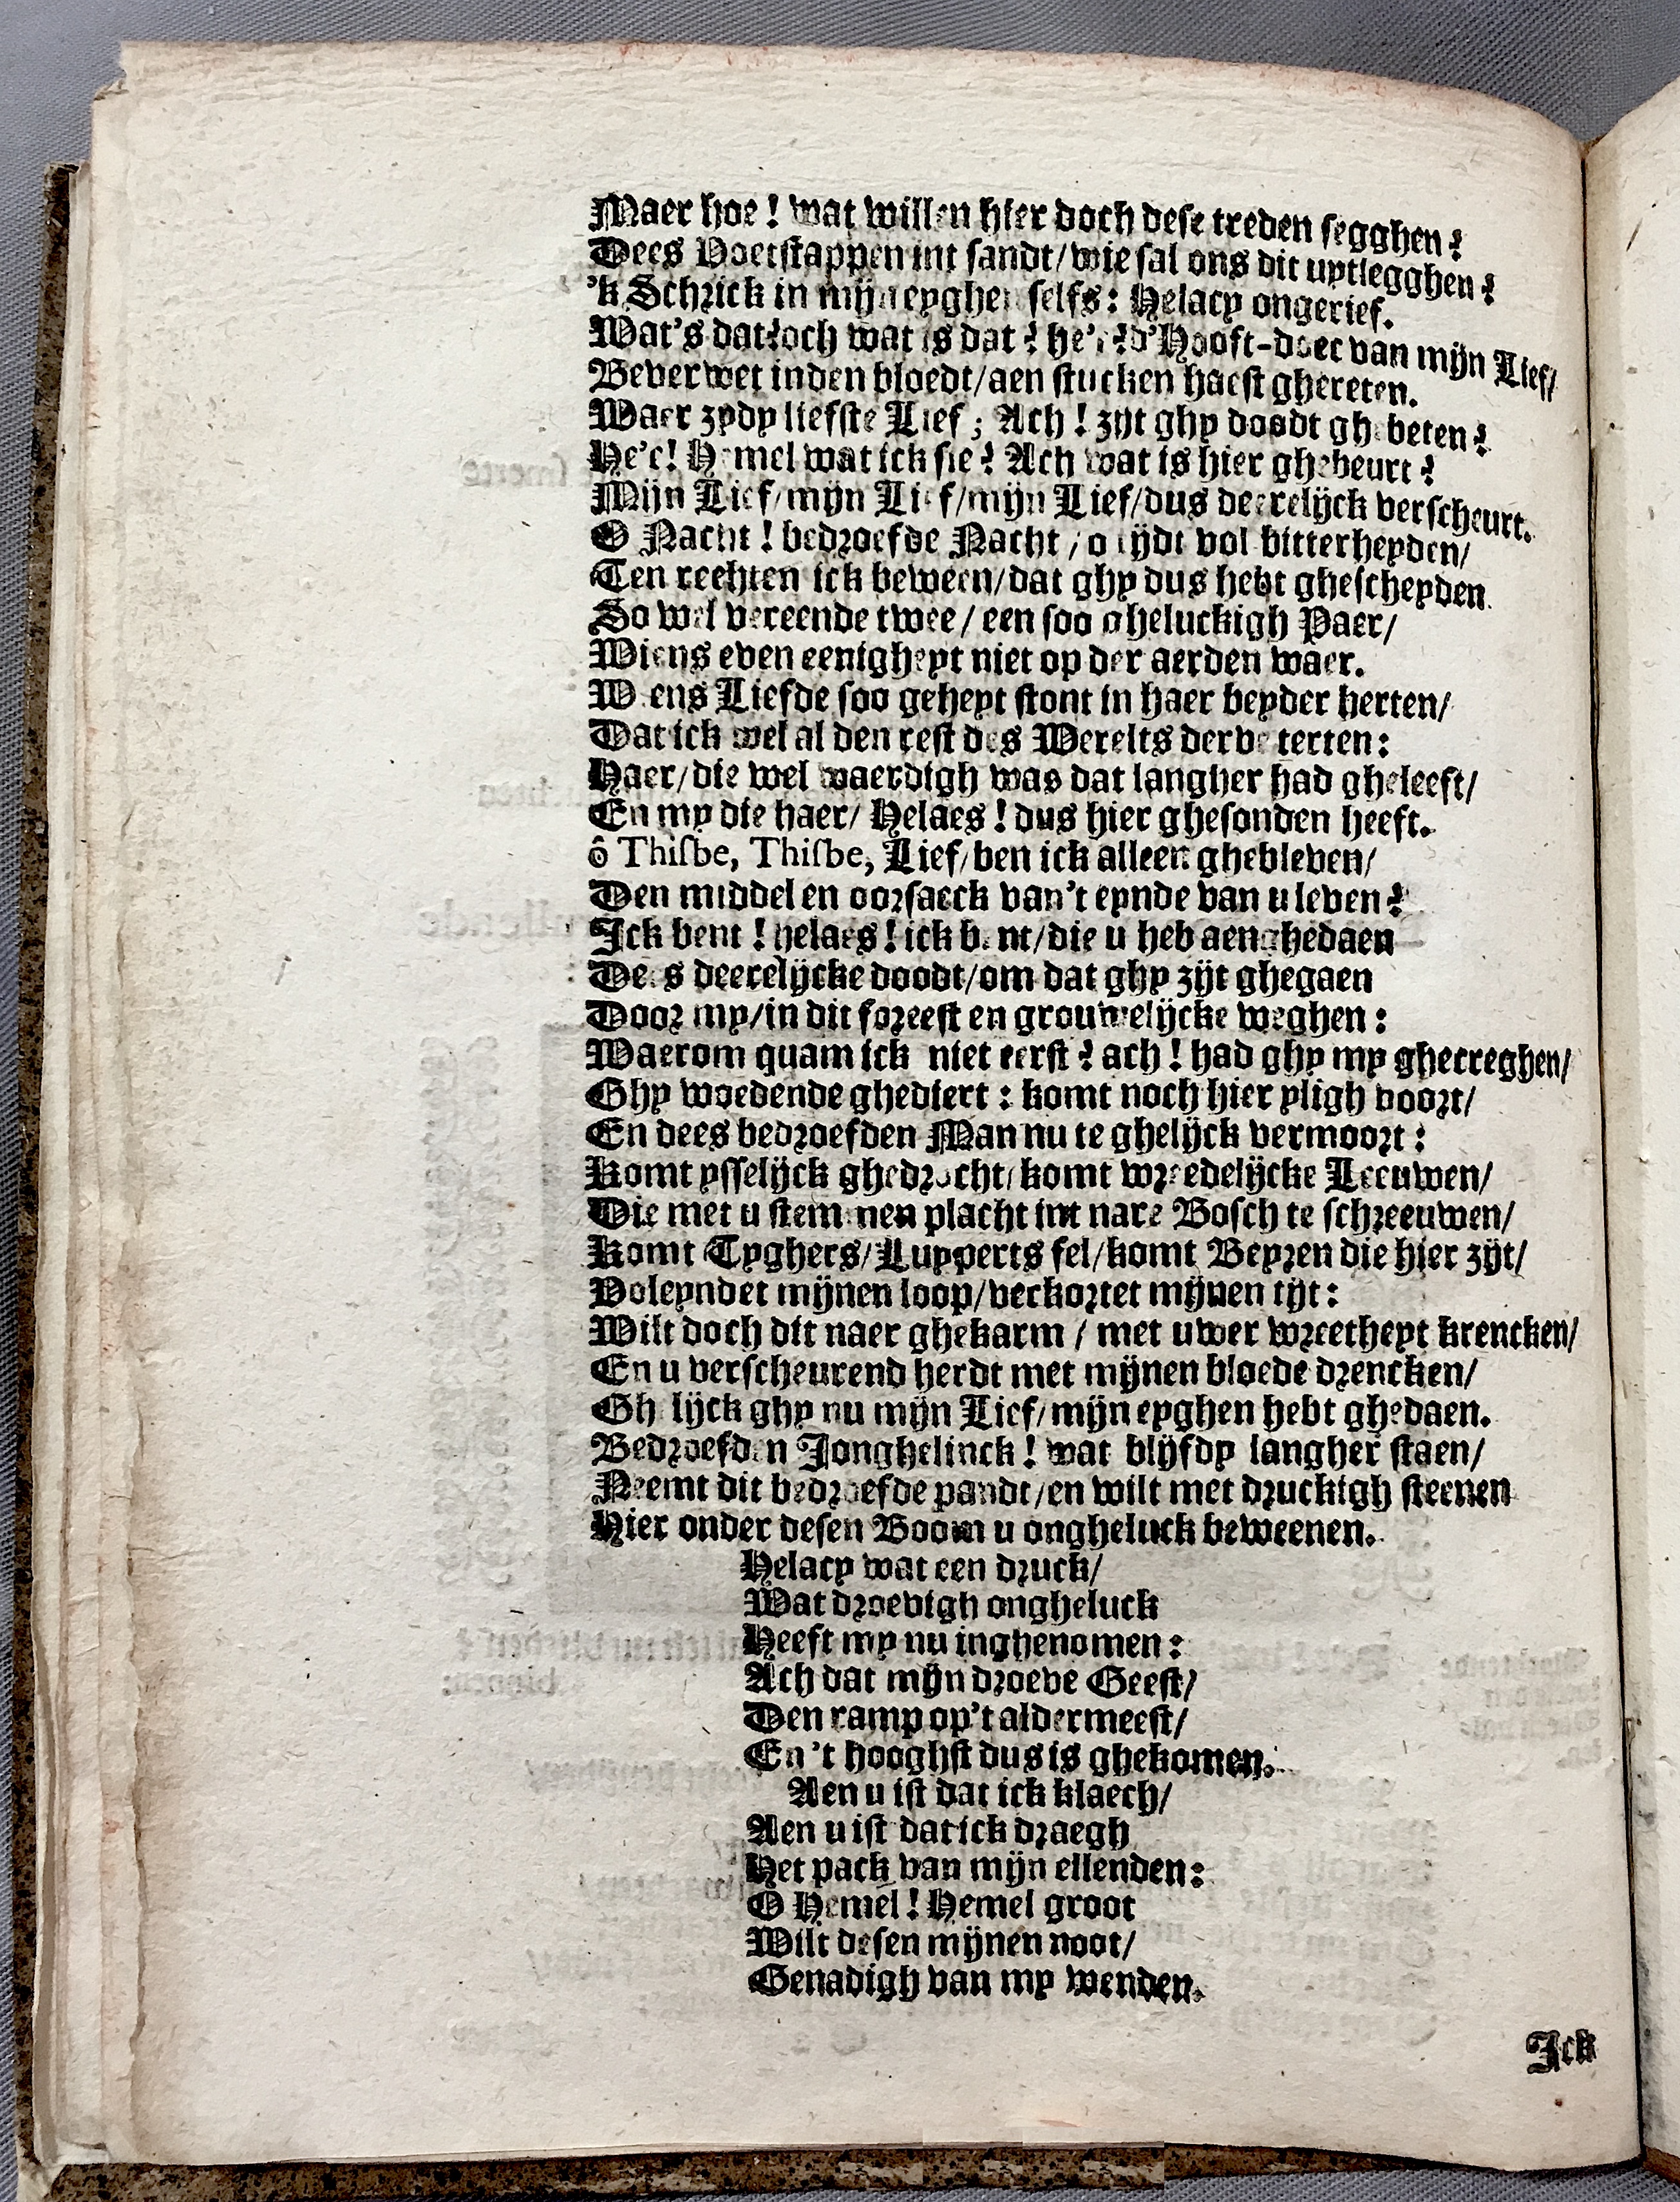 Maer hoe! wat willen hier doch dese treden segghen?
Dees Voetstappen int sandt/wie sal ons dit uytlegghen?
'k Schrick in mijn eyghen selfs: Helacy ongerief.
Wat's dat? och wat is dat? he'c? d'Hooft-doec van mijn Lief/
Beverwet inden bloedt/aen stucken haest ghereten.
Waer zydy liefste Lief; Ach! zijt ghy doodt ghebeten?
He'c! Hemel wat ick sie? Ach wat is hier ghebeurt?
Mijn Lief/mijn Lief/mijn Lief/dus deerelijck verscheurt.
O Nacht! bedroefde Nacht/o tijdt vol bitterheyden/
Ten rechten ick beween/dat ghy dus hebt ghescheyden
So wel vereende twee/ een soo gheluckigh Paer/
Wiens even eenigheyt niet op der aerden waer.
Wiens Liefde soo geheyt stont in haer beyder herten/
Dat ick wel al den rest des Werelts derve terten:
Haer/die wel waerdigh was dat langher had gheleeft/
En my die haer/ Helaes! dus hier ghesonden heeft.
ô Thisbe, Thisbe, Lief/ben ick alleen ghebleven/
Den middel en oorsaeck van't eynde van u leven?
Ick bent! helaes! ick bent/die u heb aenghedaen
Dees deerelijcke doodt/om dat ghy zijt ghegaen
Door my/in dit foreest en grouwelijcke weghen:
Waerom quam ick niet eerst? ach! had ghy my ghecreghen/
Ghy woedende ghediert: komt noch hier yligh voort/
En dees bedroefden Man nu te ghelijck vermoort:
Komt ysselijck ghedrocht/komt wreedelijcke Leeuwen/
Die met u stemmen placht int nare Bosch te schreeuwen/
Komt Tyghers/Lupperts fel/komt Beyren die hier zijt/
Voleyndet mijnen loop/verkortet mijnen tijt:
Wilt doch dit naer ghekarm / met uwer wreetheyt krencken/
En u verscheurend herdt met mijnen bloede drencken/
Ghelijck ghy nu mijn Lief/mijn eyghen hebt ghedaen.
Bedroefden Jonghelinck! wat blijfdy langher staen/
Neemt dit bedroefde pandt/en wilt met druckigh steenen
Hier onder desen Boom u ongheluck beweenen.
Helacy wat een druck/
Wat droevigh ongheluck
Heeft my nu inghenomen:
Ach dat mijn droeve Geest/
Den ramp op't aldermeest/
En 't hooghst dus is ghekomen.
Aen u ist dat ick klaech/
Aen u ist dat ick draegh
Het pack van mijn ellenden:
O Hemel! Hemel groot
Wilt desen mijnen noot/
Genadigh van my wenden.
Ick